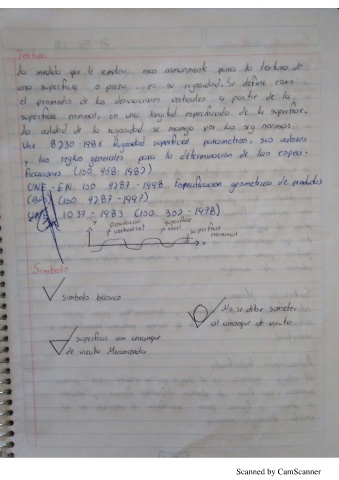 Textura
La medida que le emplea mas comunmente para la textura de
una superficie o pieza, es su rugosidad. Se define como
el promedio de las desviaciones verticales a partir de la
superficie nominal, en una longitud especificada de la superficie.
La calidad de la rugosidad se maneja por las sig normas.
Une 8230-1986 Rugosidad superficial parametros, sus valores
y las reglas generales para la determinacion de las especi-
ficaciones (ISO 468:1982)
UNE-EN ISO 4287-1998 Especificacion geometrica de productos
(GPS) (ISO 4287-1997)
UNE 1037-1983 (ISO 1302-1978)
y
Desviacion
vertical(es)
superficie
real
superficie
nominal
x
Simbolo
simbolo basico
No se debe someter
al arranque de viruta
superficie con arranque
de viruta Mecanizada
Scanned by CamScanner